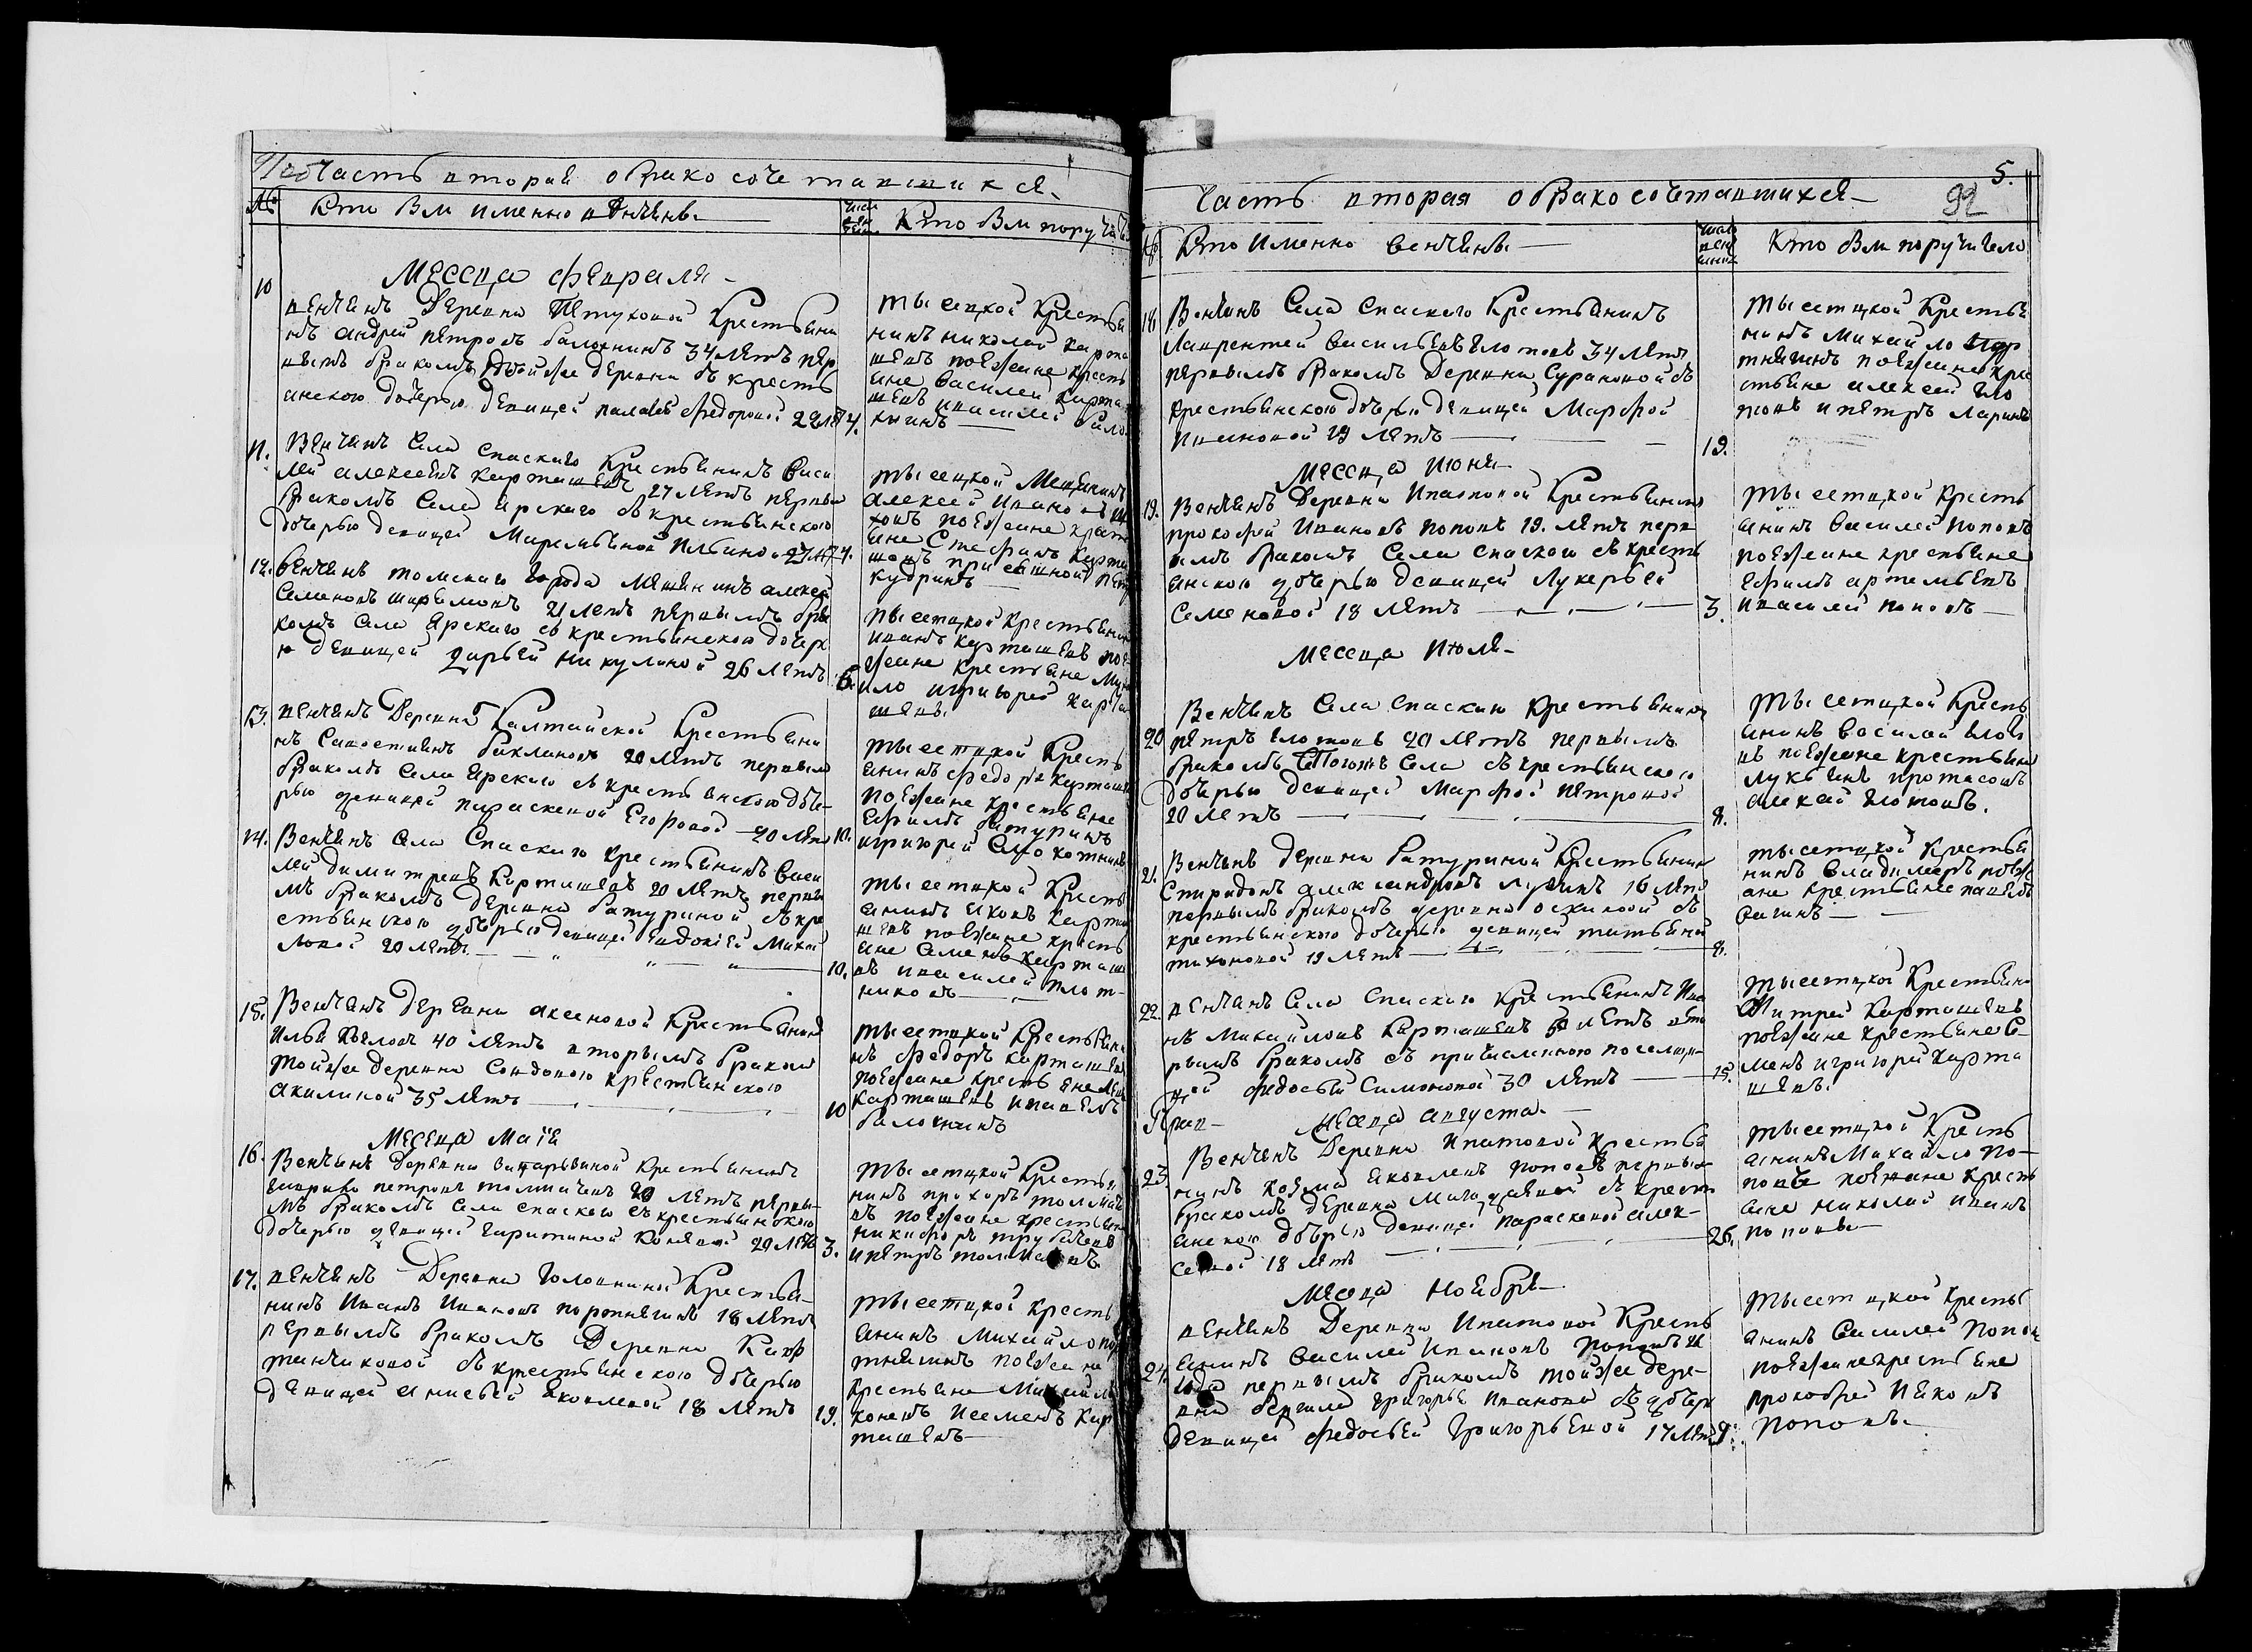 Часть вторая о бракосочетавшихся
№
Кто бли именно венчаны
Кто бли поручит
Месеца февраля
10
венчанъ Деревни Петуховой Крестьяни
нъ андрей петровъ балохнинъ 34 летъ пер
вымъ бракомъ тойже деревни съ кресть
анскою дочерью девицей палагей федоровой 22 ле
4.
тысецкой Крестья
нинъ николай карта
шевъ поезжане кресть
яне василей карта
шевъ ивасилей бало
хнинъ
11.
Венчанъ Села Спаскаго Крестьянинъ Васи
лей алексеевъ карташевъ 27 летъ первы
бракомъ Села Ярскаго съ крестьянскою
дочерью девицей Маремьяной Ильино 23 ле
4.
тысецкой Мещанинъ
алексей Ивановъ
поезжане крест
яне Стефанъ Карта
шовъ
кудринъ
12.
венчанъ томскаго города мещенинъ алексей
Семеновъ 21 летъ первымъ бра
комъ Села Ярскаго съ крестьянскою дочер
ю девицей дарьей никулиной 26 летъ
6.
тысетцкой крестьянин
иванъ карташевъ пое
зжане крестьяне Миха
ило игригорей Карта
шевы.
13.
венчанъ Деревни Калтайской Крестьяни
нъ Савостиянъ баклановъ 20 летъ первым
бракомъ Села Ярскаго съ крестьянскою доче
рью девицей параскевой Егоровой 20 лет
10.
тысетцкой Кресть
янинъ федоръ карташев
поезжане крестьяне
ефимъ батуринъ
игригорей
14.
Венчанъ Села Спаскаго крестьянинъ Васи
лей димитревъ Карташевъ 20 летъ первы
мъ бракомъ деревни батуриной съ кре
стьянскою дочерью девицей Евдокией Михай
ловой 20 летъ.
10.
тысетцкой Кресть
янинъ яковъ карта
шевъ поезжане кресть
яне Семенъ карташ
въ ивасилей плот
никовъ
15.
Венчанъ деревни аксеновой Крестьянин
Илья 40 летъ вторымъ браком
тойже деревни Совдовою крестьянскою
акилиной 35 летъ
10
тысетцкой Крестьяни
нъ федоръ карташевъ
поезжане крестьяне
карташевъ ипавелъ
балохнинъ
Месеца Маїя
16.
Венчанъ деревни крестьянинъ
гаврило петровъ толмачевъ 20 летъ первы
мъ бракомъ Села спаскаго съ крестьянскою
дочерью девицей харитиной 20 летъ
3.
тысетцкой Крестья
нинъ прохоръ толмаче
въ поезжане крестьяне
никифоръ трубачевъ
ипетръ толмачевъ
17.
венчанъ Деревни головниной Крестья
нинъ Иванъ Ивановъ портнягинъ 18 летъ
первымъ бракомъ Деревни Каф
танчиковой съ крестьянскою дочерью
девицей анисьей Яковлевой 18 летъ
19.
тысетцкой Кресть
янинъ михайло пор
тнягинъ поезжане
Крестьяне Михайл
коневъ исеменъ Кар
ташевъ
5.
Часть вторая о бракосочетавшихся
92
Кто Именно венчаны
Кто бли поручители
18
Венчанъ Села Спаскаго Крестьянинъ
Лаврентей васильевъ глотовъ 34 летъ
первымъ бракомъ Деревни Сурановой съ
крестьянскою дочерью девицей Марфой
Ивановой 19 летъ
19.
тысетцкой Крестья
нинъ Михайло пор
тнягинъ поезжане кре
стьяне алексей гло
товъ ипетръ Ларинъ
Месеца Июня
19.
Венчанъ Деревни Ипатовой Крестьянинъ
прокофей Ивановъ поповъ 19. летъ перв
ымъ бракомъ Села Спаскаго съ кресть
янскою дочерью девицей Лукерьей
Семеновой 18 летъ
3.
тысетцкой Кресть
янинъ Василей поповъ
поезжане крестьяне
ефимъ артемьевъ
ивасилей поповъ
Месеца Июля
20
Венчанъ Села Спаскаго Крестьянинъ
петръ глотовъ 20 летъ первымъ
бракомъ Тогожъ Села съ крестьянскою
дочерью девицей Марфой петровой
20 летъ
8.
тысетцкой Кресть
янинъ василей глото
въ поезжане крестьяне
лукьянъ протасовъ
алексей глотовъ.
21.
Венчанъ деревни батуриной Крестьянин
Спиридонъ александровъ 16 летъ
первымъ бракомъ деревни съ
крестьянскою дочерью девицей татьяной
тихоновой 19 летъ
8.
тысетцкой Крестья
нинъ Владимеръ поезж
ане крестьяне павелъ
22.
венчанъ Села Спаскаго Крестьянинъ Ива
нъ Михайловъ Карташевъ 50 летъ вто
рымъ бракомъ съ причисленною поселщи
цей федосьей Симоновой 30 летъ
15.
тысетцкой Крестьяни
Митрей Карташевъ
поезжане крестьяне Се
менъ игригорей карта
шевы.
Месеца августа
23
Венчанъ Деревни Ипатовой Крестья
нинъ Козма Яковлевъ поповъ первым
бракомъ деревни съ крест
янскою дочерью девицей параскевой алек
сеевой 18 летъ
26.
тысетцкой Кресть
янинъ Михайло по
повъ поезжане кресть
яне николай иванъ
поповы
Месеца Ноября
24.
венчанъ Деревни Ипатовой Кресть
янинъ василей Ивановъ поповъ
года первымъ бракомъ тойже дере
вни григорья Иванова съ дочерь
девицей федосьей Григорьевой 17 лет
9.
тысетцкой Кресть
янинъ Василей Попов
поезжане крестьяне
прокофей Ияковъ
Поповы.